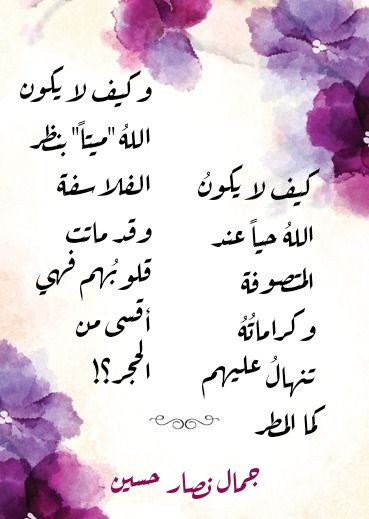 كيف لا يكونُ
اللهُ حياً عند
المتصوفة
وكراماتُهُ
تنهالُ عليهم
كما المطر
وكيف لا يكون
اللهُ "ميتاً" بنظر
الفلاسفة
وقد ماتت
قلوبُهم فهي
أقسى من
الحجر؟!
جمال نصار حسين